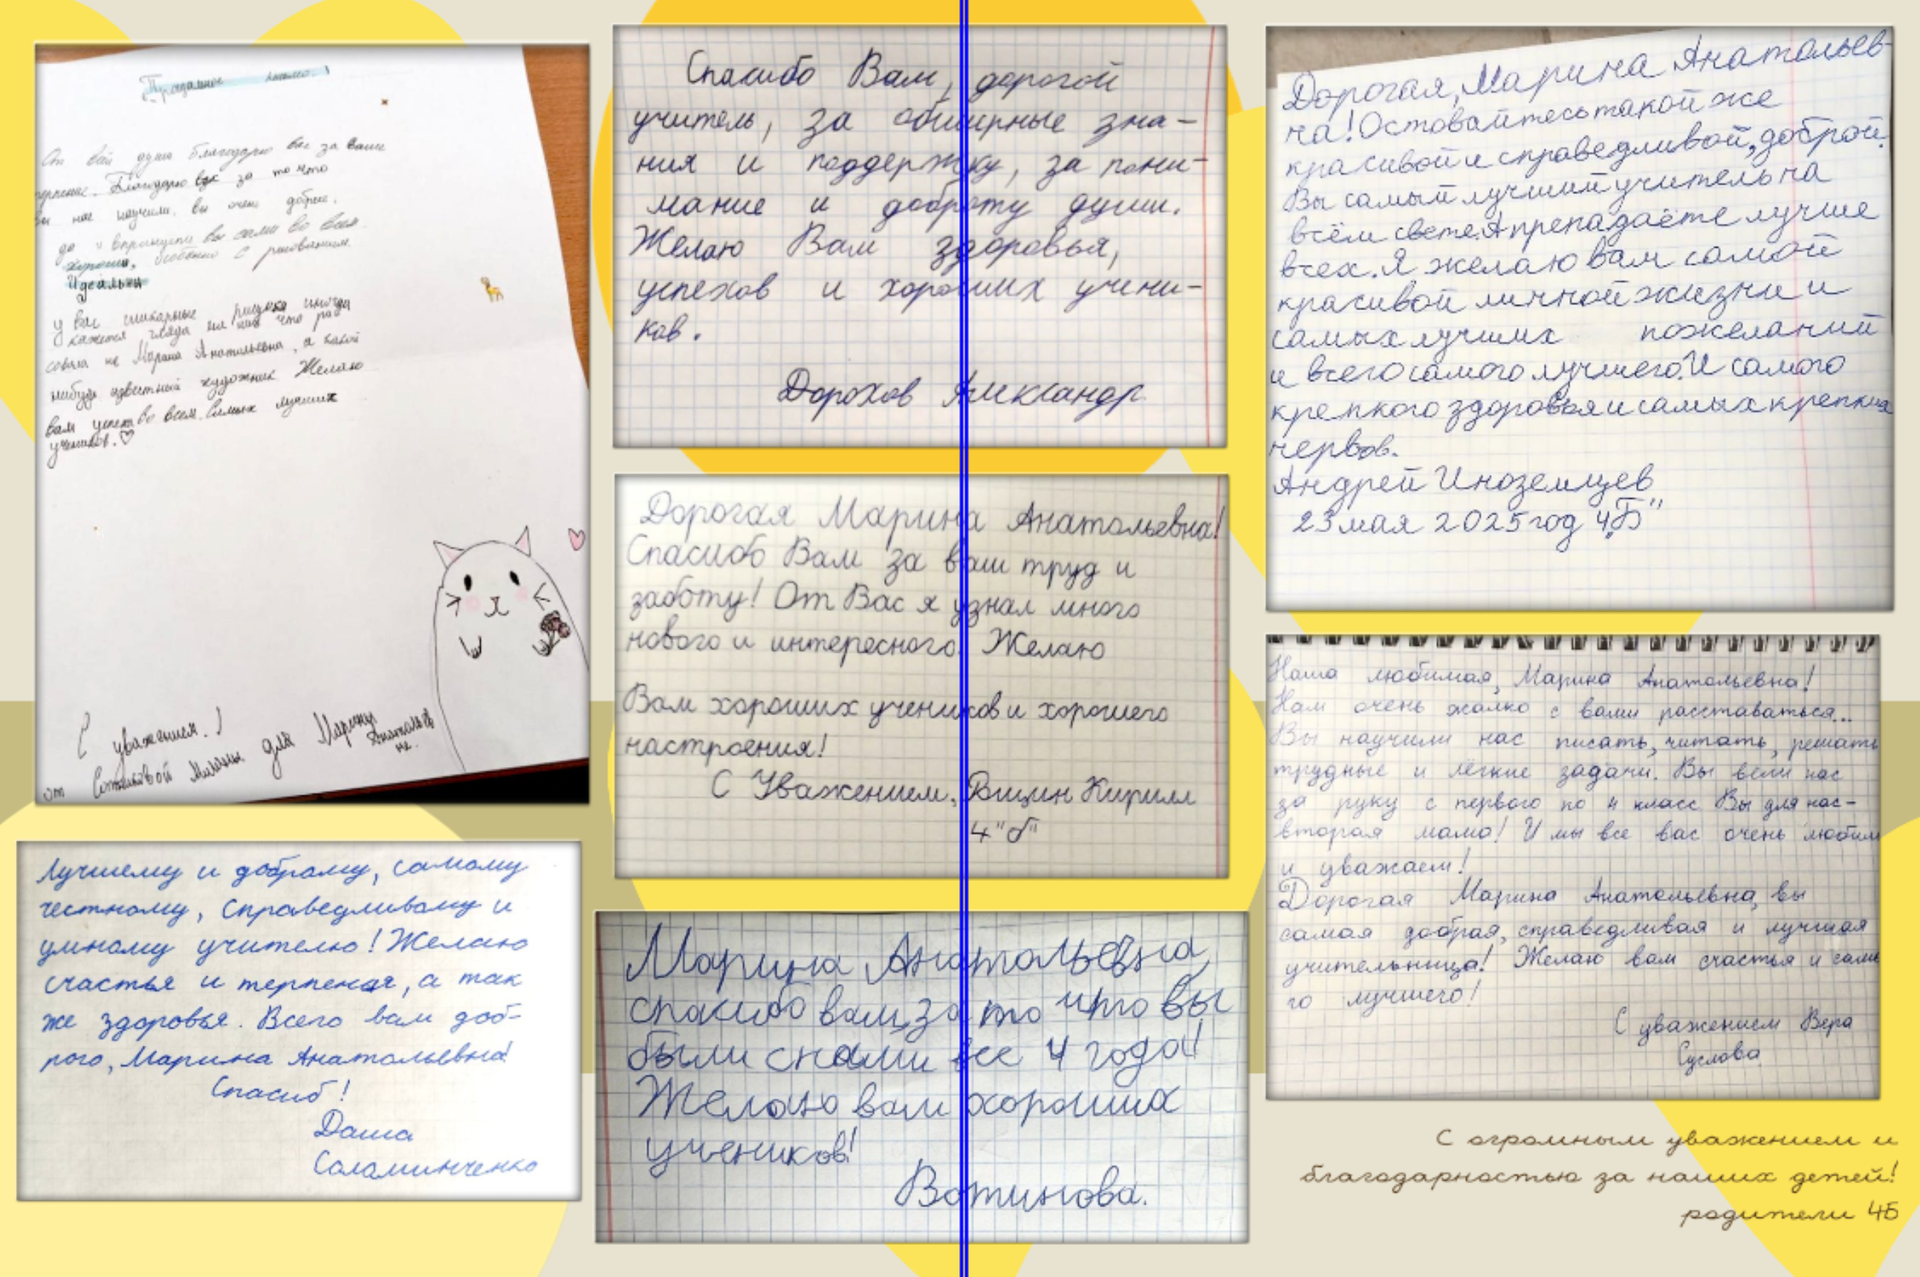 Прощальное письмо.
От всей души благодарю вас за ваше
терпение. Благодарю вас за то что
вы нас научили. вы очень добрые.
да и впринципи вы сами во всем
хороши, особенно с рисованием.
Идеальна
у вас шикарные рисунки иногда
кажется глядя на них что
не Марина Анатольевна, а какой
нибудь известный художник Желаю
вам успеха во всем. Самых лучших
учеников.♡
С уважением!
от Милана для Марины
Анатольев
не.
Лучшему и доброму, самому
честному, справедливому и
умному учителю! Желаю
счастья и терпения, а так
же здоровья. Всего вам доб-
рого, Марина Анатольевна!
Спасиб!
Даша
Соломинченко
Спасибо Вам, дорогой
учитель, за обширные зна-
ния и поддержку, за пони-
мание и доброту души.
Желаю Вам здоровья,
успехов и хороших учени-
ков.
Дорохов Александр
Дорогая Марина Анатольевна!
Спасибо Вам за ваш труд и
заботу! От Вас я узнал много
нового и интересного. Желаю
Вам хороших учеников и хорошего
настроения!
С Уважением, Кирилл
4"б"
Марина Анатольевна,
спасибо вам, за то что вы
были с нами все 4 года!
Желаю вам хороших
учеников!
Вотинова.
Дорогая, Марина Анатольев-
на! Оставайтесь такой же
красивой и справедливой, доброй.
Вы самый лучший учитель на
всём свете. А препадаёте лучше
всех. Я желаю вам самой
красивой личной жизни и
самых лучших пожеланий
и всего самого лучшего. И самого
крепкого здоровья и самых крепких
нервов.
Андрей Иноземцев
23 мая 2025 год 4„Б"
Наша любимая, Марина Анатольевна!
Нам очень жалко с вами расставаться...
Вы научили нас писать, читать, решать
трудные и лёгкие задачи. Вы вели нас
за руку с первого по 4 класс Вы для нас-
вторая мама! И мы все вас очень любим
и уважаем!
Дорогая Марина Анатольевна, вы
самая добрая, справедливая и лучшая
учительница! Желаю вам счастья и само
го лучшего!
С уважением Вера
Суслова
С огромным уважением и
благодарностью за наших детей!
родители 4Б